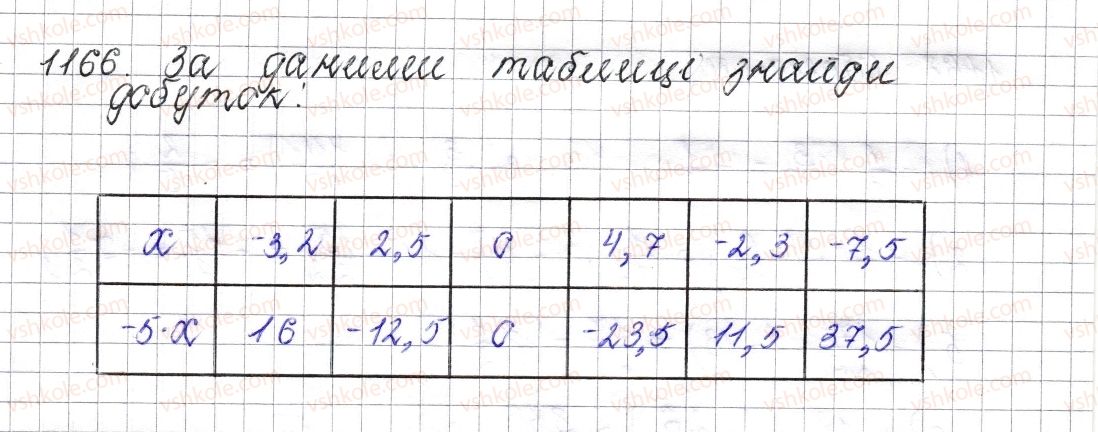 1166. За даними таблиці знайди
добуток:
x -3,2 2,5 0 4,7 -2,3 -7,5
-5·x 16 -12,5 0 -23,5 11,5 37,5